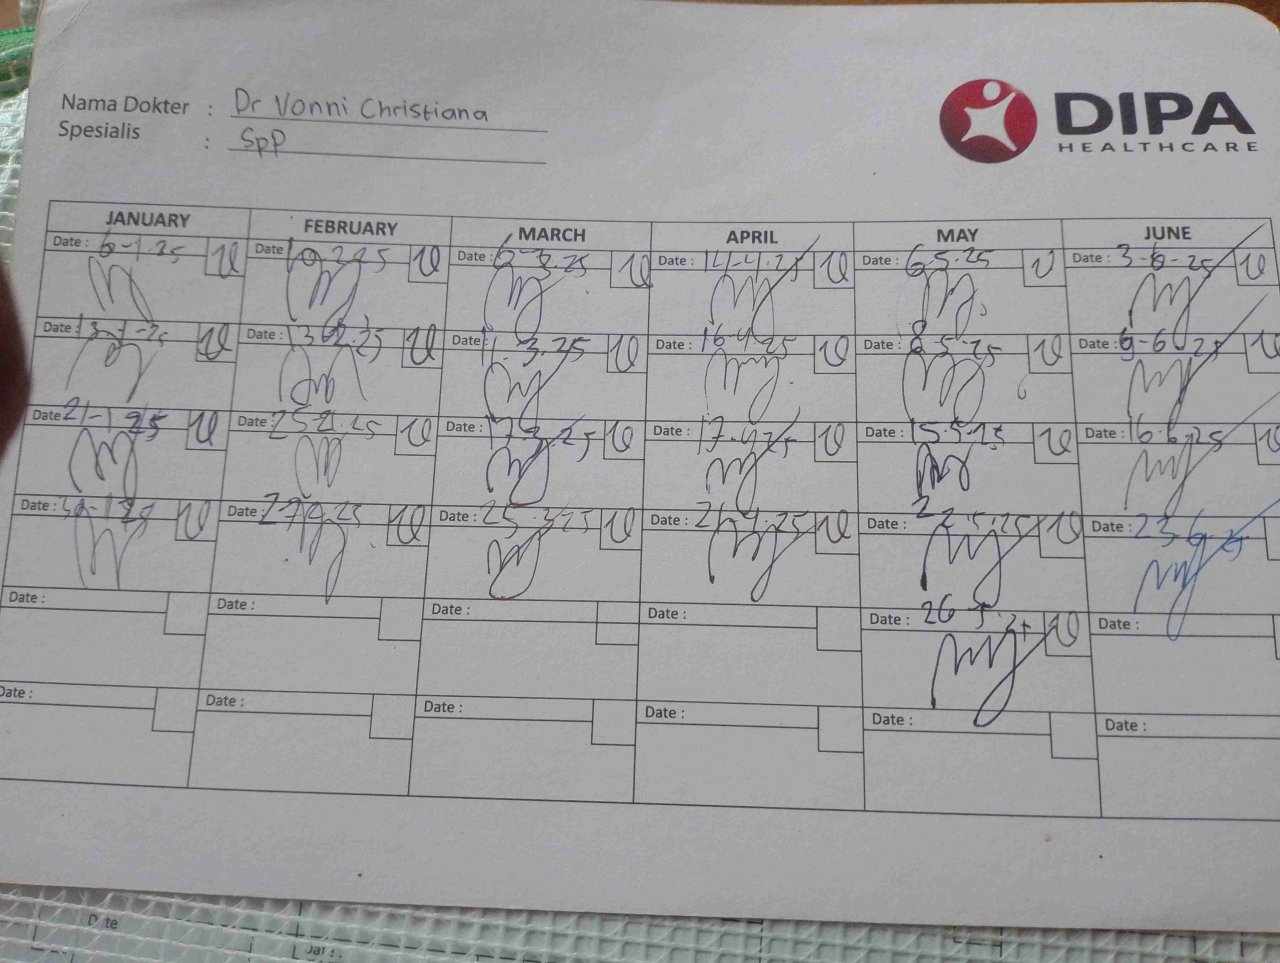 Nama Dokter : Dr Vonni Christiana
Spesialis : SpP
DIPA
HEALTHCARE
JANUARY FEBRUARY MARCH APRIL MAY JUNE
Date : 6-1-25 Date : 10.2.25 Date : 6-3.25 Date : 14-4.25 Date : 6.5.25 Date : 3-6-25
Date : 13-1-25 Date : 13.2.25 Date : 11.3.25 Date : 16.4.25 Date : 8.5.25 Date : 9-6.25
Date : 21-1.25 Date : 25.2.25 Date : 17.3.25 Date : 17.4.25 Date : 15.5.25 Date : 16.6.25
Date : Date : 27.2.25 Date : 25.3.25 Date : 21.4.25 Date : 22.5.25 Date : 23.6.25
Date : Date : Date : Date : Date : 26.5.25 Date :
Date : Date : Date : Date : Date : Date :
Date